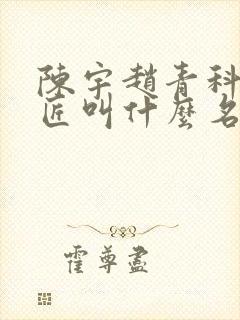 陳宇趙青科
匠叫什麼名
霍尊盡